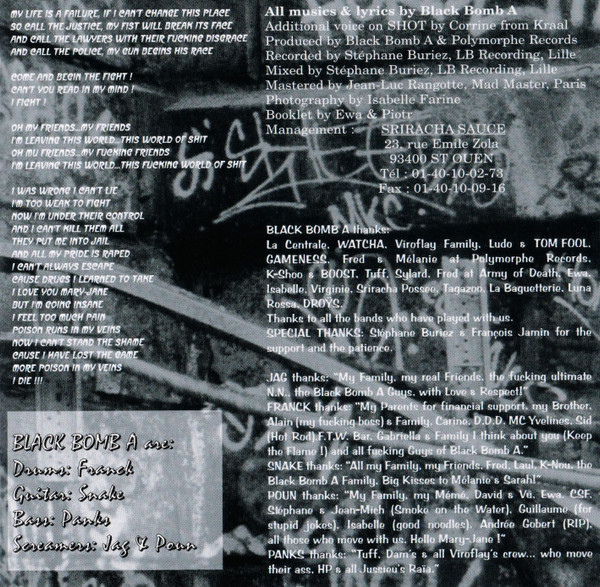 MY LIFE IS A FAILURE, IF I CAN'T CHANGE THIS PLACE
SO CALL THE JUSTICE, MY FIST WILL BREAK ITS FACE
AND CALL THE LAWYERS WITH THEIR FUCKING DISGRACE
AND CALL THE POLICE, MY GUN BEGINS HIS RACE
COME AND BEGIN THE FIGHT !
CAN'T YOU READ IN MY MIND !
I FIGHT !
OH MY FRIENDS...MY FRIENDS
I'M LEAVING THIS WORLD...THIS WORLD OF SHIT
OH MU FRIENDS...MY FUCKING FRIENDS
I'M LEAVING THIS WORLD...THIS FUCKING WORLD OF SHIT
I WAS WRONG I CAN'T LIE
I'M TOO WEAK TO FIGHT
NOW I'M UNDER THEIR CONTROL
AND I CAN'T KILL THEM ALL
THEY PUT ME INTO JAIL
AND ALL MY PRIDE IS RAPED
I CAN'T ALWAYS ESCAPE
CAUSE DRUGS I LEARNED TO TAKE
I LOVE YOU MARY-JANE
BUT I'M GOING INSANE
I FEEL TOO MUCH PAIN
POISON RUNS IN MY VEINS
NOW I CAN'T STAND THE SHAME
CAUSE I HAVE LOST THE GAME
MORE POISON IN MY VEINS
I DIE !!!
BLACK BOMB A are:
Drums: Franck
Guitar: Snake
Bass: Panks
Screamers: Jag & Poun
All musics & lyrics by Black Bomb A
Additional voice on SHOT by Corrine from Kraal
Produced by Black Bomb A & Polymorphe Records
Recorded by Stéphane Buriez, LB Recording, Lille
Mixed by Stéphane Buriez, LB Recording, Lille
Mastered by Jean-Luc Rangotte, Mad Master, Paris
Photography by Isabelle Farine
Booklet by Ewa & Piotr
Management : SRIRACHA SAUCE
23, rue Emile Zola
93400 ST OUEN
Tél : 01-40-10-02-73
Fax : 01-40-10-09-16
MKC
BLACK BOMB A thanks:
La Centrale, WATCHA, Viroflay Family, Ludo & TOM FOOL,
GAMENESS, Fred & Mélanie at Polymorphe Records,
K-Shoo & BOOST, Tuff, Sylard, Fred at Army of Death, Ewa,
Isabelle, Virginie, Sriracha Possee, Tagazoo, La Baguetterie, Luna
Rossa, DROYS.
Thanks to all the bands who have played with us.
SPECIAL THANKS: Stéphane Buriez & François Jamin for the
support and the patience.
JAG thanks: "My Family, my real Friends, the fucking ultimate
N.N., the Black Bomb A Guys, with Love & Respect!"
FRANCK thanks: "My Parents for financial support, my Brother,
Alain (my fucking boss) & Family, Carino, D.D.D, MC Yvelines, Sid
(Hot Rod),F.T.W. Bar, Gabriella & Family I think about you (Keep
the Flame !) and all fucking Guys of Black Bomb A."
SNAKE thanks: "All my Family, my Friends, Fred, Laul, K-Nou, the
Black Bomb A Family, Big Kisses to Mélanie & Sarah!"
POUN thanks: "My Family, my Mémé, David & Vé, Ewa, CSF,
Stéphane & Jean-Mich (Smoke on the Water), Guillaume (for
stupid jokes), Isabelle (good noodles), Andrée Gobert (RIP),
all those who move with us. Hello Mary-Jane !"
PANKS thanks: "Tuff, Dam's & all Viroflay's crew... who move
their ass, HP & all Jussieu's Raïa."